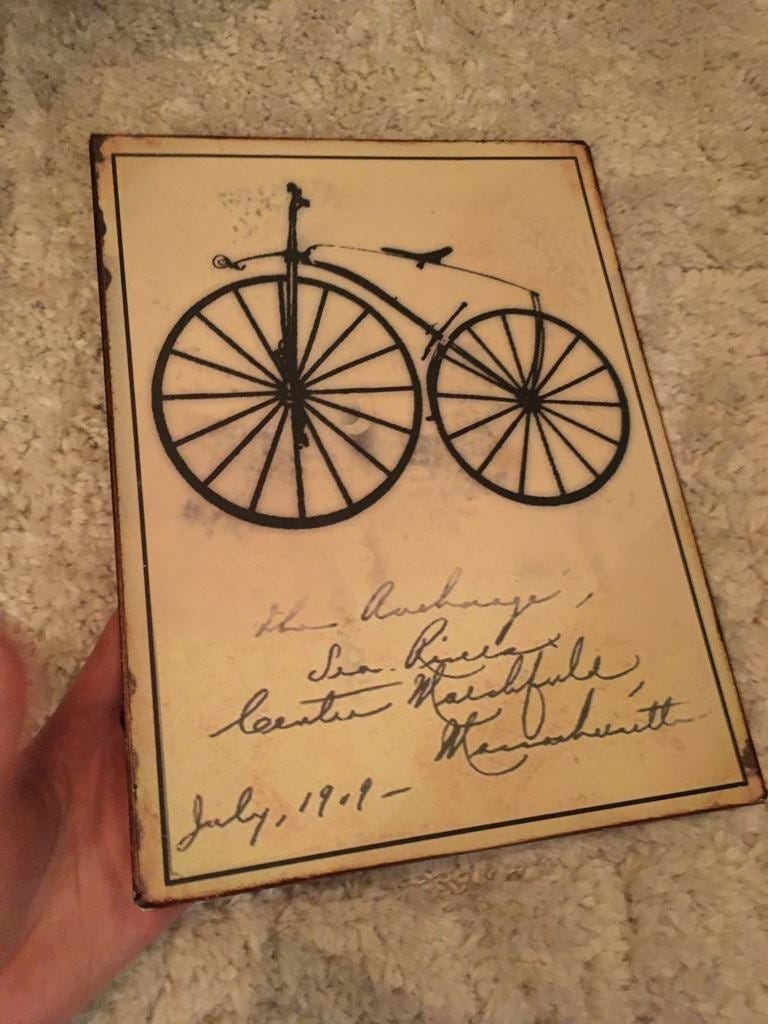 The Anchorage,
Sea Rivers
Center Marshfield,
Massachusetts
July, 1909-